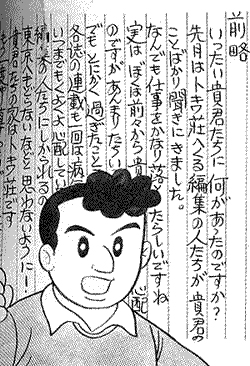 前略
いったい貴君たちに何があったのですか?
先月はトキワ荘へくる編集の人たちが貴君の
ことばかり聞きにきました。
なんでも仕事をかなり落 たらしいですね
実はぼくは前々から貴 心配
のですがあんまりたくい
でもとにかく過ぎたこと
各誌の連載も一回は病
いつまでもくよくよ心配してい
編集の人たちにしかられるの
東京へもどらないなどと思わないように!